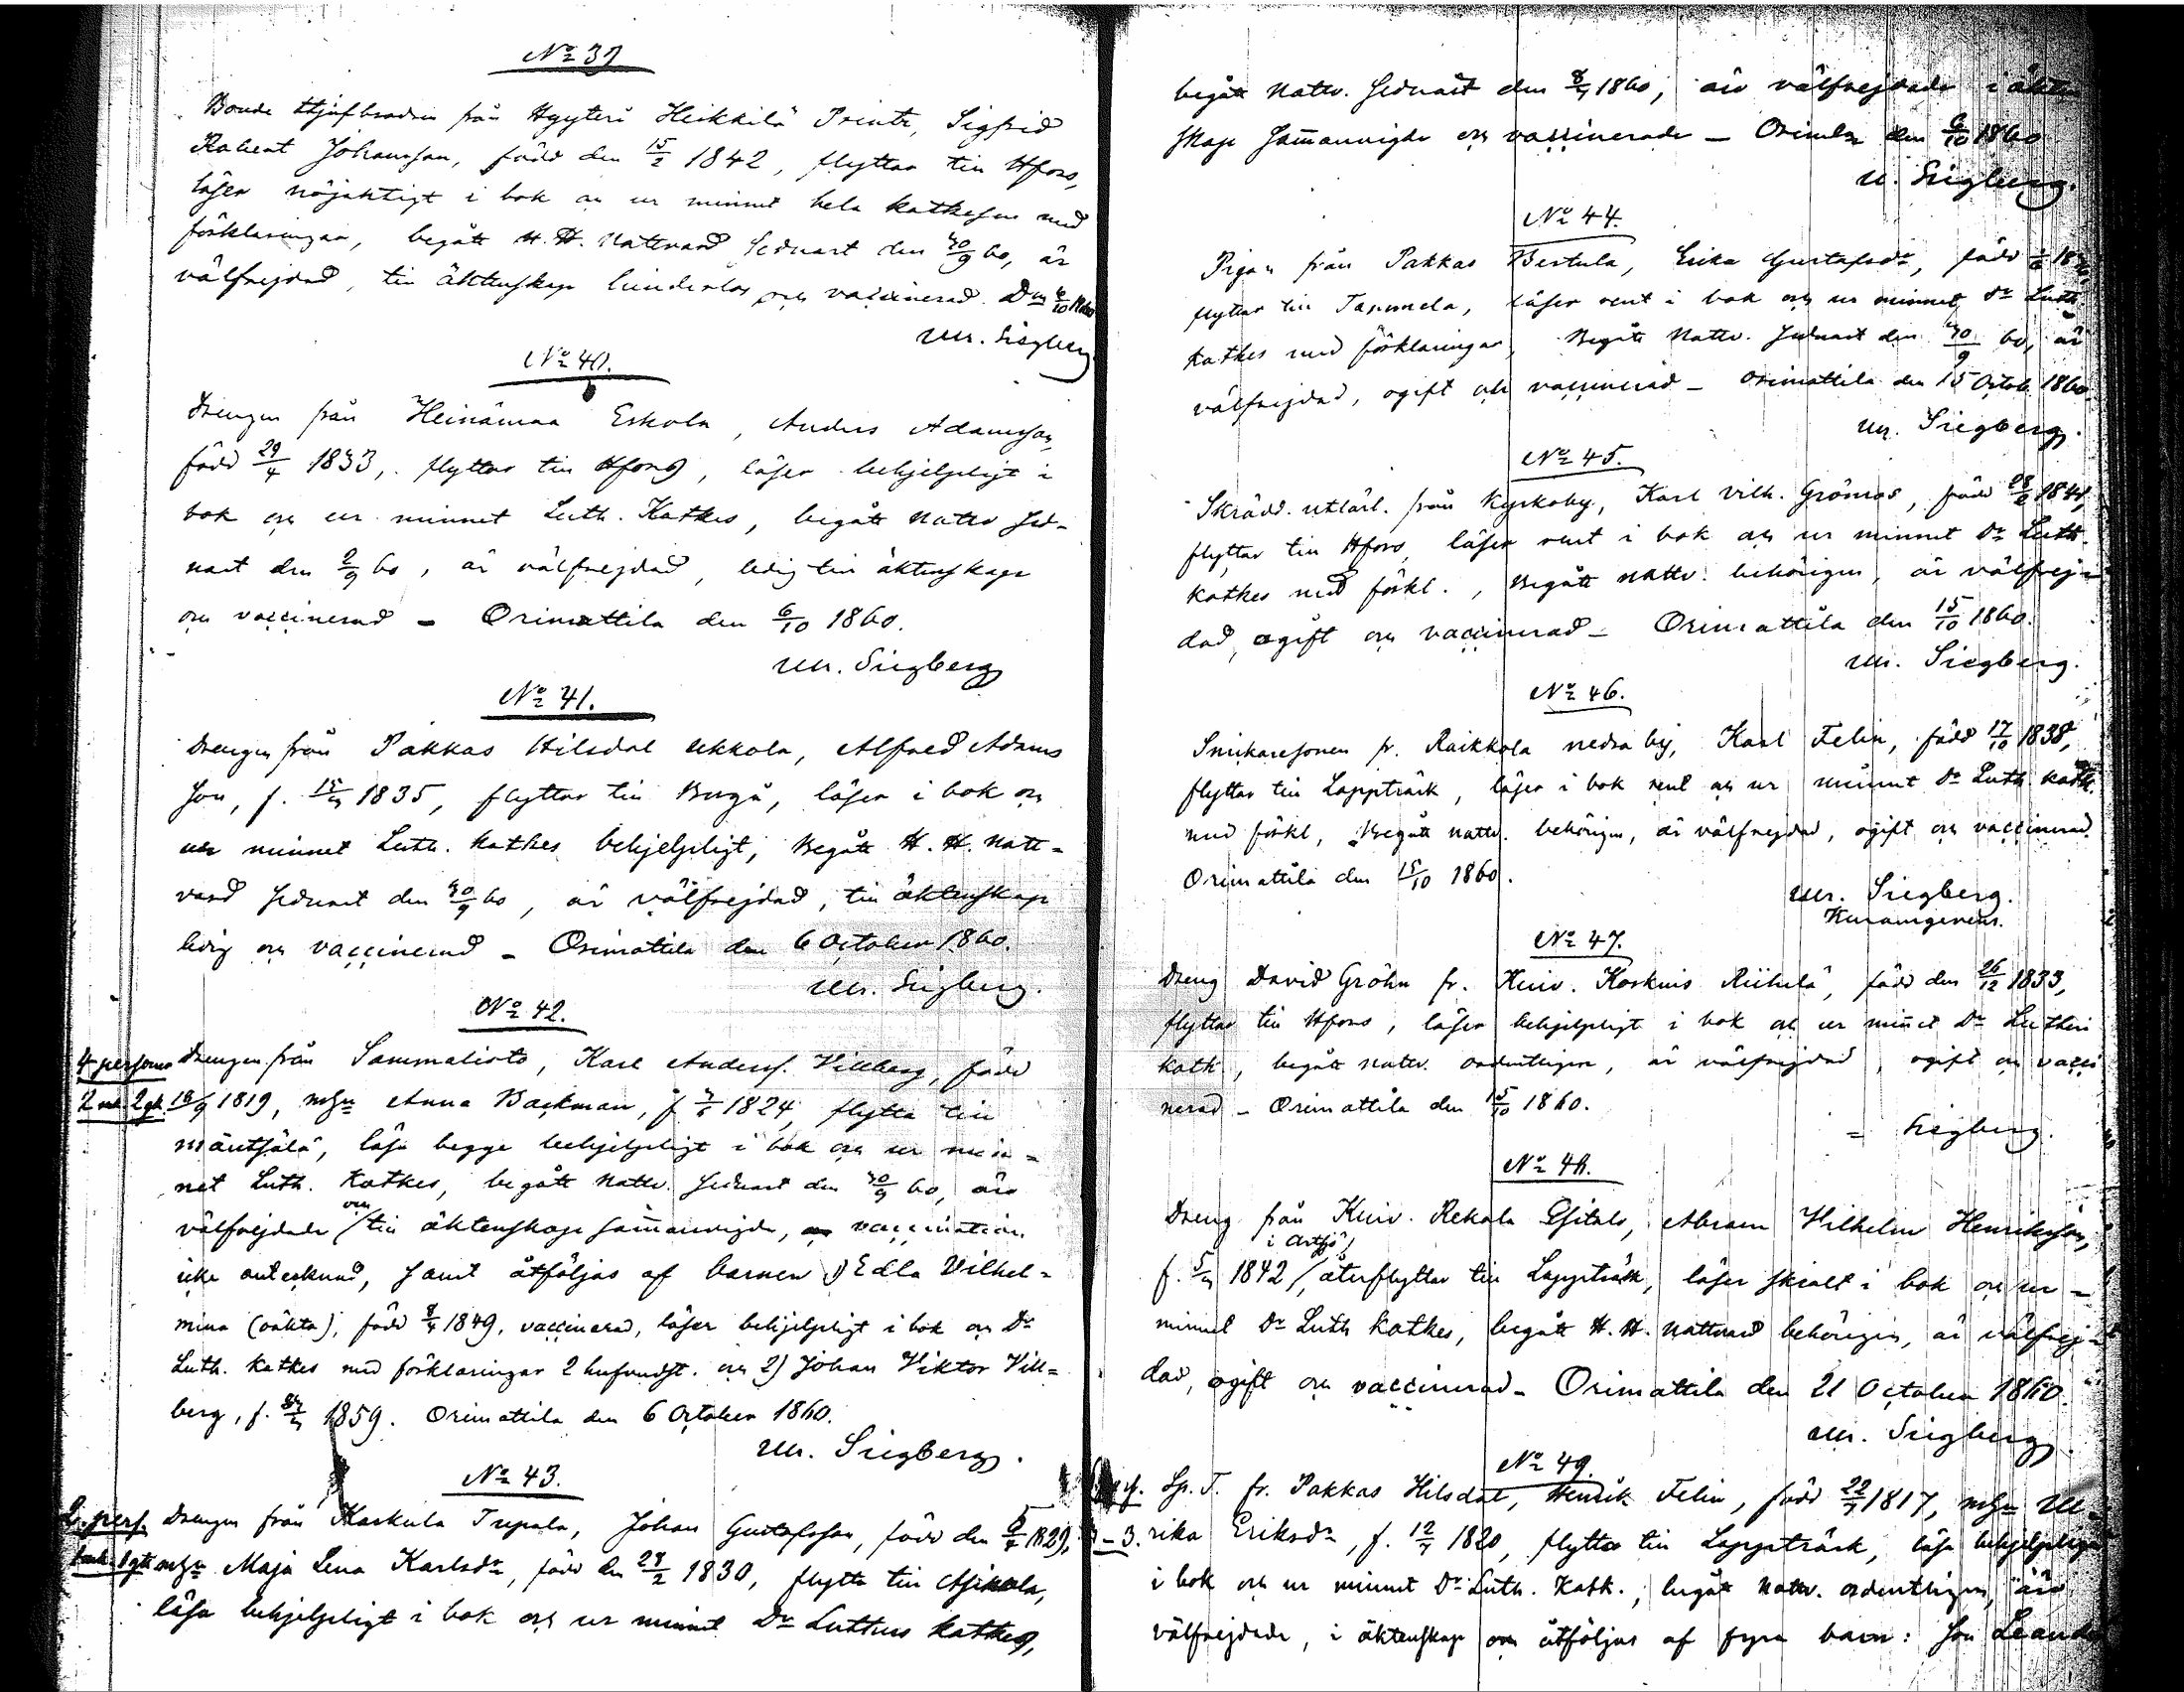 No 39
Bonde från Hyyteri Heikkilä Printi, Sigfrid
Robert Johansson, född den 15/2 1842, flyttar till Hfors,
läser nöjaktigt i bok och ur minnet hela kathesen med
förklaringar, begått H. H. Nattvard sednast den 30/9 60, är
välfrejdad, till äktenskap hinderlös och vaccinerad. D. 6/10 1860
M. Siegberg
No 40.
Drengen från Heinämaa Eskola, Anders Adamsson,
född 29/4 1833, flyttar till Hfors, läser behjelpligt i
bok och ur minnet Luth. Kathes, begått nattv sed-
nast den 2/9 60, är välfrejdad, ledig till äktenskap
och vaccinerad - Orimattila den 6/10 1860.
M. Siegberg
No 41.
Drengen från Pakkas Hilsdal Ukkola, Alfred Adams
son, f. 1835, flyttar till Borgå, läser i bok och
ur minnet Luth. kathes behjelpligt, Begått H. H. natt-
vard sednast den 30/9 60, är välfrejdad, till äktenskap
ledig och vaccinerad - Orimattila den 6 October 1860.
M. Siegberg.
No 42.
4 personer Drengen från Sammalisto, Karl Anderss. Villberg, född
2 mk. 2 qk. 18/9 1819, m. hu Anna Backman, f. 1824, flytta till
Mäntsälä, läsa begge behjelpligt i bok och ur min-
net Luth. Kathes, begått nattv. sednast den 30/9 60, äro
välfrejdade och till äktenskap sammanvigde, vaccination
icke antecknad, samt åtföljas af barnen 1) Edla Vilhel-
mina (oäkta), född 8/4 1849, vaccinerad, läser behjelpligt i bok och Dr
Luth. Kathes med förklaringar 2 hufvudst. och 2) Johan Viktor Vill-
berg, f. 1859. Orimattila den 6 October 1860.
M. Siegberg.
No 43.
2 pers. Drengen från Karkula Tupala, Johan Gustafsson, född den 1829,
1 mk. 1 qk m. hu Maja Lena Karlsdr, född den 28/2 1830, flytta till Asikkala,
läsa behjelpligt i bok och ur minnet Dr Lutheri kathes,
begått nattv. sednast den 8/4 1860, äro välfrejdade i äkten
skap sammanvigde och vaccinerade - Orimla den 6/10 1860
M. Siegberg.
No 44.
Pigan från Pakkas Bertula, Erika Gustafsdr, född
flyttar till Tammela, läser rent i bok och ur minnet Dr Luth
kathes med förklaringar, Begått Nattv. sednast den 30/9 60, är
välfrejdad, ogift och vaccinerad - Orimattila den 15 Octob. 1860.
M. Siegberg.
No 45.
Skrädd. utlärl. från Kyrkoby, Karl Vilh. Grönros, född 1841,
flyttar till Hfors, läser rent i bok och ur minnet Dr Luth.
kathes med förkl., Begått nattv. behörigen, är välfrej-
dad, ogift och vaccinerad - Orimattila den 15/10 1860.
M. Siegberg.
No 46.
Snickaresonen fr. Raikkola nedra by, Karl Felin, född 17/10 1838,
flyttar till Lappträsk, läser i bok rent och ur minnet Dr Luth kath.
med förkl, Begått nattv. behörigen, är välfrejdad, ogift och vaccinerad.
Orimattila den 15/10 1860.
M. Siegberg.
No 47.
Dreng David Gröhn fr. Kuiv. Koskuis Riihelä, född den 26/12 1833,
flyttar till Hfors, läser behjelpligt i bok och ur minnet Dr Lutheri
kath, begått nattv. ordentligen, är välfrejdad, ogift och vacci
nerad - Orimattila den 15/10 1860.
= Siegberg.
No 48.
Dreng från Kuiv. Rekola Esitalo, Abram Vilhelm Henriksson,
i Artsjö
f. 1842, återflyttar till Lappträsk, läser skralt i bok och ur -
minnet Dr Luth kathes, begått H. H. nattvard behörigen, är välfrej-
dad, ogift och vaccinerad - Orimattila den 21 October 1860.
M. Siegberg.
No 49.
Sp. T. fr. Pakkas Hilsdal, Henrik Felin, född 22/7 1817, m. hu Ul
3-3. rika Eriksdr, f. 12/7 1820, flytta till Lappträsk, läsa behjelpligt
i bok och ur minnet Dr Luth. Kath., begått nattv. ordentligen, äro
välfrejdade, i äktenskap och åtföljas af fyra barn: Son Leander